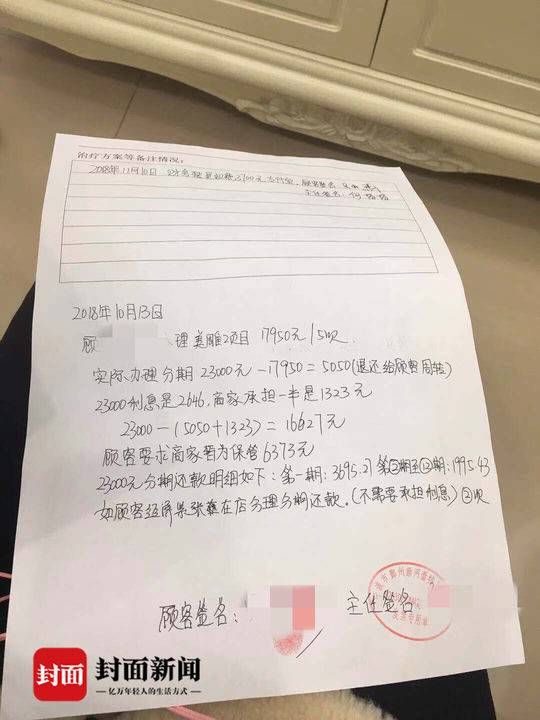 治疗方案等备注情况:
2018年11月10日 3700元 顾客签名:
主任签名: 何
2018年10月13日
顾 理美雕2项目 17950元/5次
实际办理分期 23000元-17950=5050(退还给顾客周转)
23000利息是2646,商家承担一半是1323元
23000-(5050+1323)=16627元
顾客要求商家暂为保管6373元
23000元分期还款明细如下:第一期:3695.27 第②期至⑫期:1995.43
如顾客 在店办理分期还款.(不需要承担利息)②次
顾客签名: 主任签名
封面 封面新闻
—亿万年轻人的生活方式—